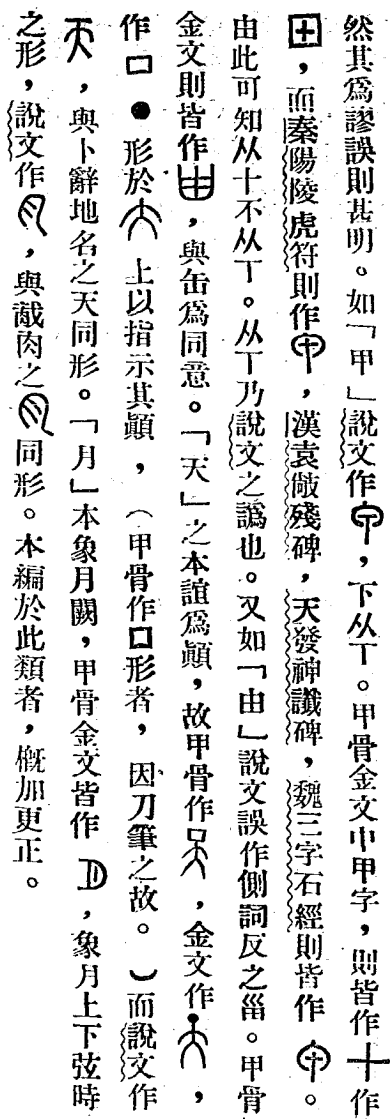 然其爲謬誤則甚明。如「甲」說文作，下从丅。甲骨金文中甲字，則皆作十作
田，而秦陽陵虎符則作，漢袁敞殘碑，天發神讖碑，魏三字石經則皆作。
由此可知从十不从丅。从丅乃說文之譌也。又如「由」說文誤作側詞反之甾。甲骨
金文則皆作，與缶爲同意。「天」之本誼爲顚，故甲骨作，金文作，
作口●形於大上以指示其顚，（甲骨作口形者，因刀筆之故。）而說文作
，與卜辭地名之天同形。「月」本象月闕，甲骨金文皆作，象月上下弦時
之形，說文作，與胾肉之同形。本編於此類者，槪加更正。